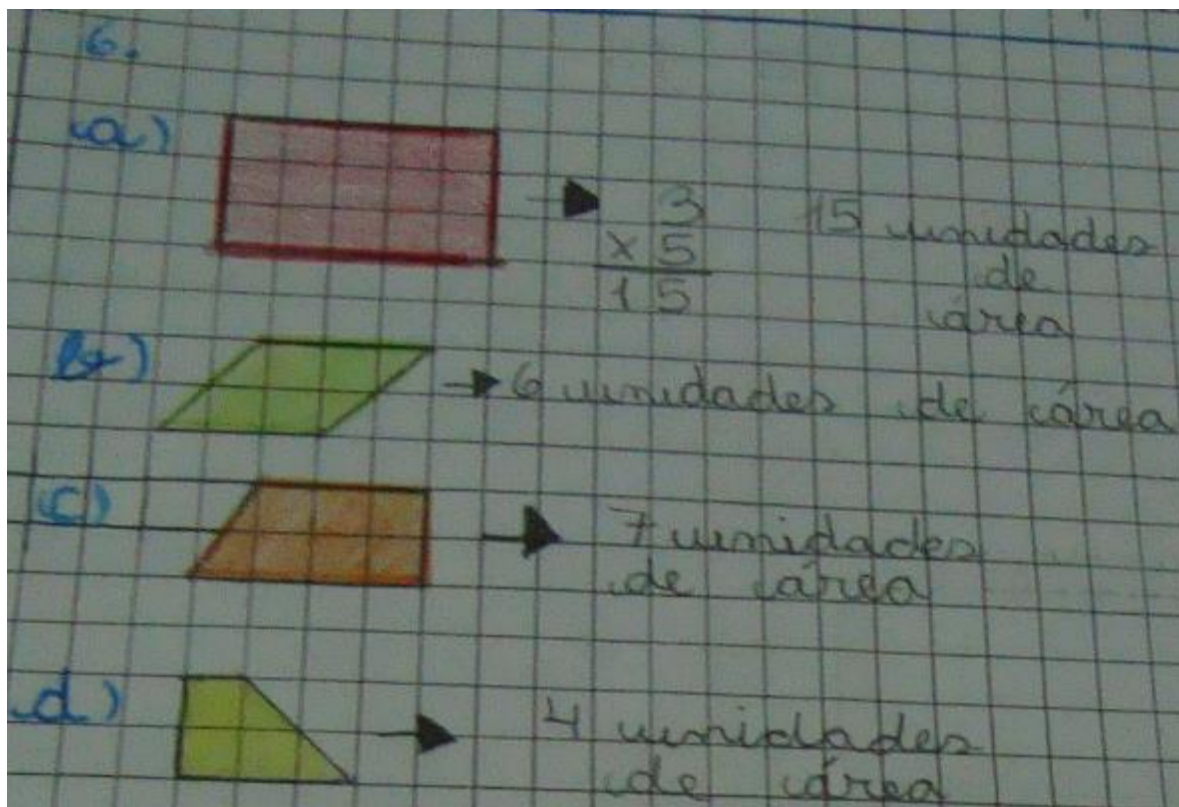 6.
a)
3
x 5
15
15 unidades
de
área
b)
6 unidades de área
c)
7 unidades
de área
d)
4 unidades
de área